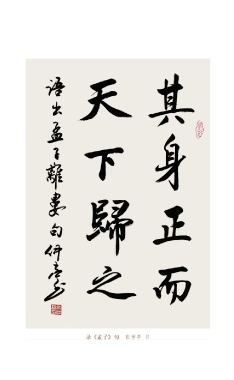 其身正而
天下歸之
語出孟子離婁句伊亭書